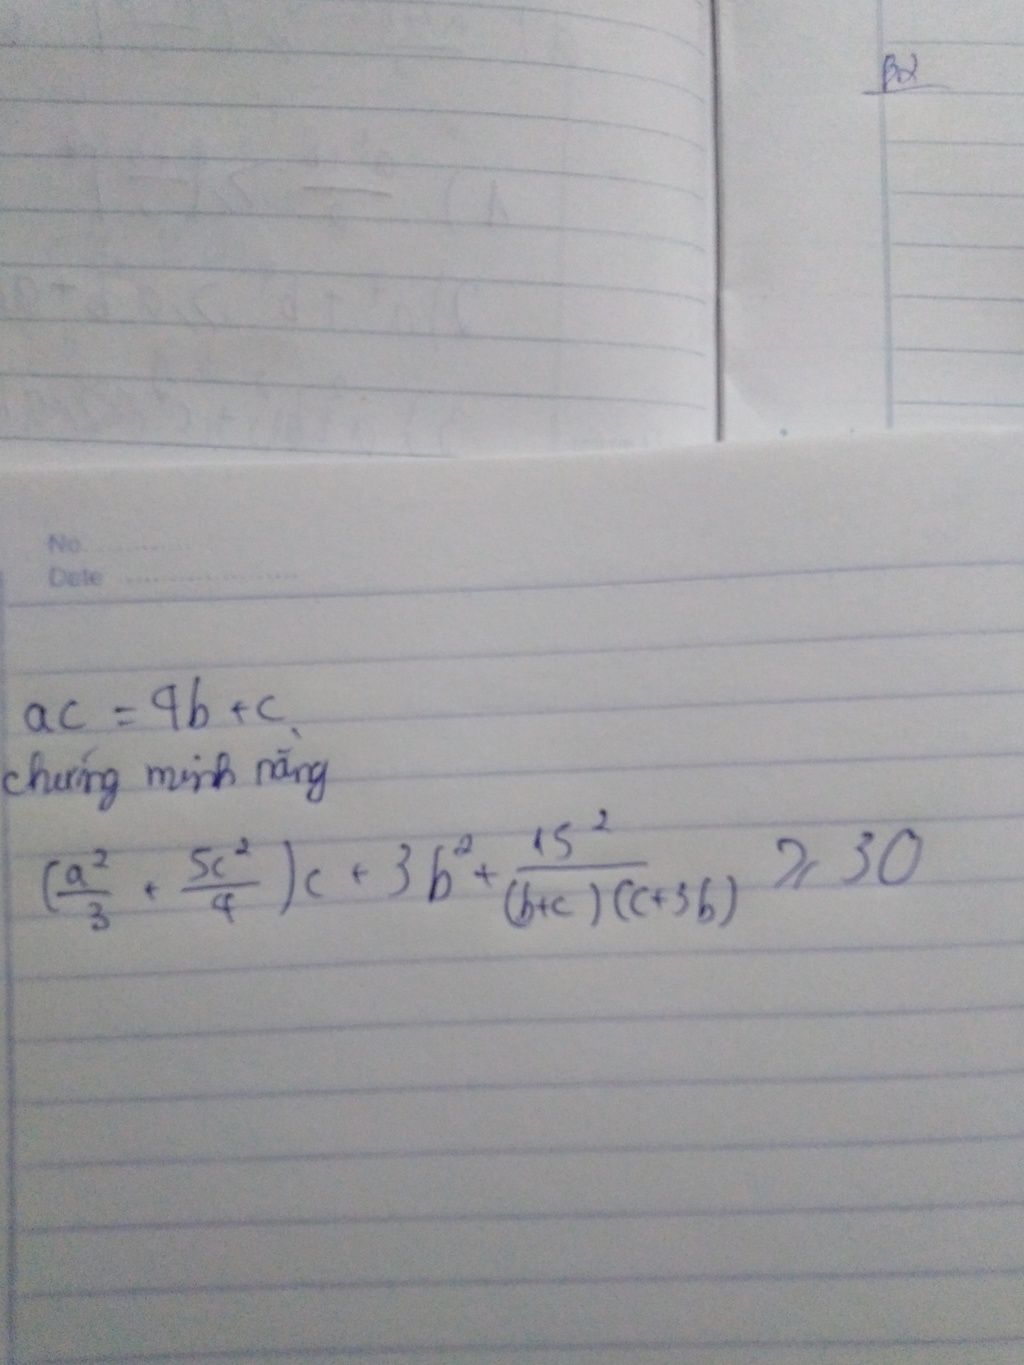 B2
No
Date
ac = 4b + c
chứng minh rằng
(a²/3 + 5c²/4)c + 3b² + 15²/((b+c)(c+3b)) ⩾ 30